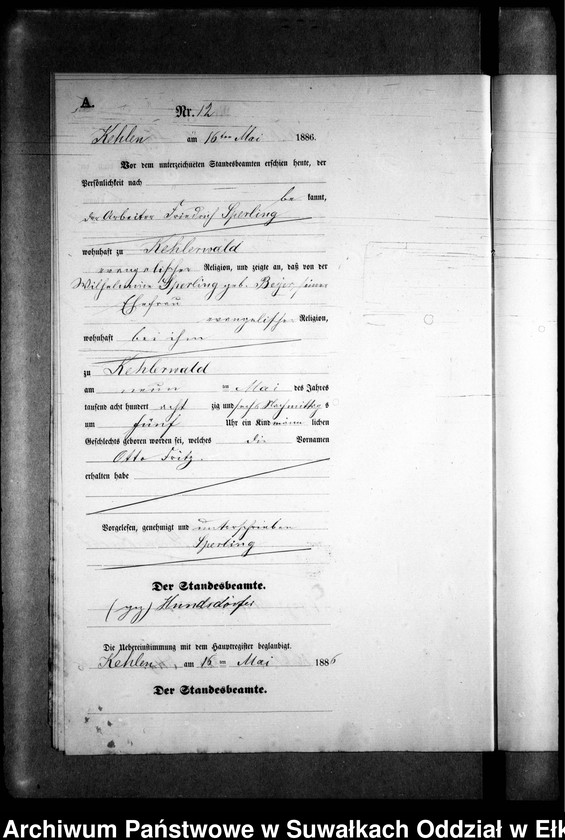 A.
Nr. 12
Kehlen am 16ten Mai 1886.
Vor dem unterzeichneten Standesbeamten erschien heute, der
Persönlichkeit nach
be kannt,
der Arbeiter Friedrich Sperling
wohnhaft zu Kehlerwald
evangelischer Religion, und zeigte an, daß von der
Wilhelmine Sperling geb. Beyer, seiner
Ehefrau
evangelischer Religion,
wohnhaft bei ihm
zu Kehlerwald
am neun ten Mai des Jahres
tausend acht hundert acht zig und sechs Nachmittag s
um fünf Uhr ein Kind männ lichen
Geschlechts geboren worden sei, welches die Vornamen
Otto Fritz.
erhalten habe
Vorgelesen, genehmigt und unterschrieben
Sperling
Der Standesbeamte.
(gez) Hundsdörfer
Die Uebereinstimmung mit dem Hauptregister beglaubigt.
Kehlen, am 16 ten Mai 1886
Der Standesbeamte.
Archiwum Państwowe w Suwałkach Oddział w Ełk